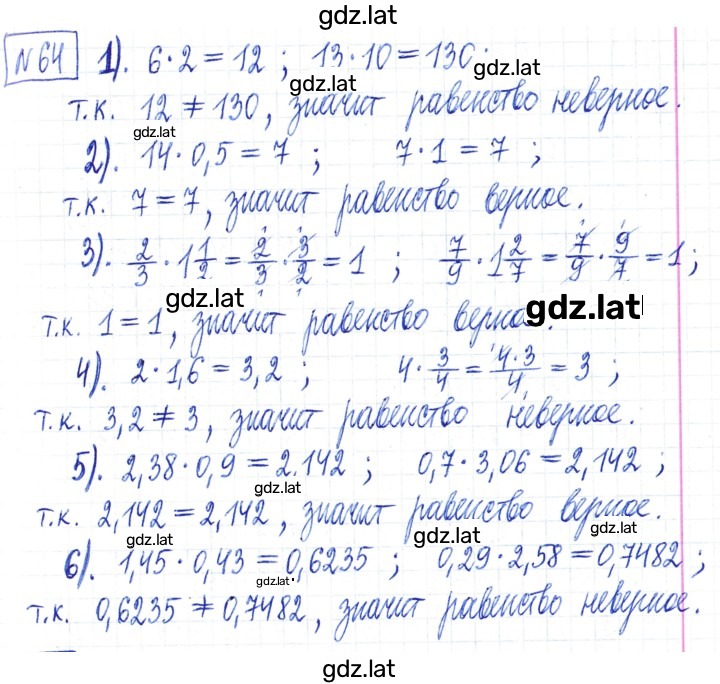 gdz.lat
№64 1). 6·2=12 ; 13·10=130;
gdz.lat gdz.lat
т.к. 12≠130, значит равенство неверное.
gdz.lat
2). 14·0,5=7 ; 7·1=7 ;
т.к. 7=7, значит равенство верное.
3). 2/3·1 1/2=2/3·3/2=1 ; 7/9·1 2/7=7/9·9/7=1;
gdz.lat gdz.lat
т.к. 1=1, значит равенство верное.
4). 2·1,6=3,2 ; 4·3/4=4·3/4=3 ;
т.к. 3,2≠3, значит равенство неверное.
5). 2,38·0,9=2.142 ; 0,7·3,06=2,142 ;
gdz.lat
т.к. 2,142=2,142, значит равенство верное.
gdz.lat gdz.lat gdz.lat
6). 1,45·0,43=0,6235 ; 0,29·2,58=0,7482 ;
gdz.lat
т.к. 0,6235≠0,7482, значит равенство неверное.
gdz.lat